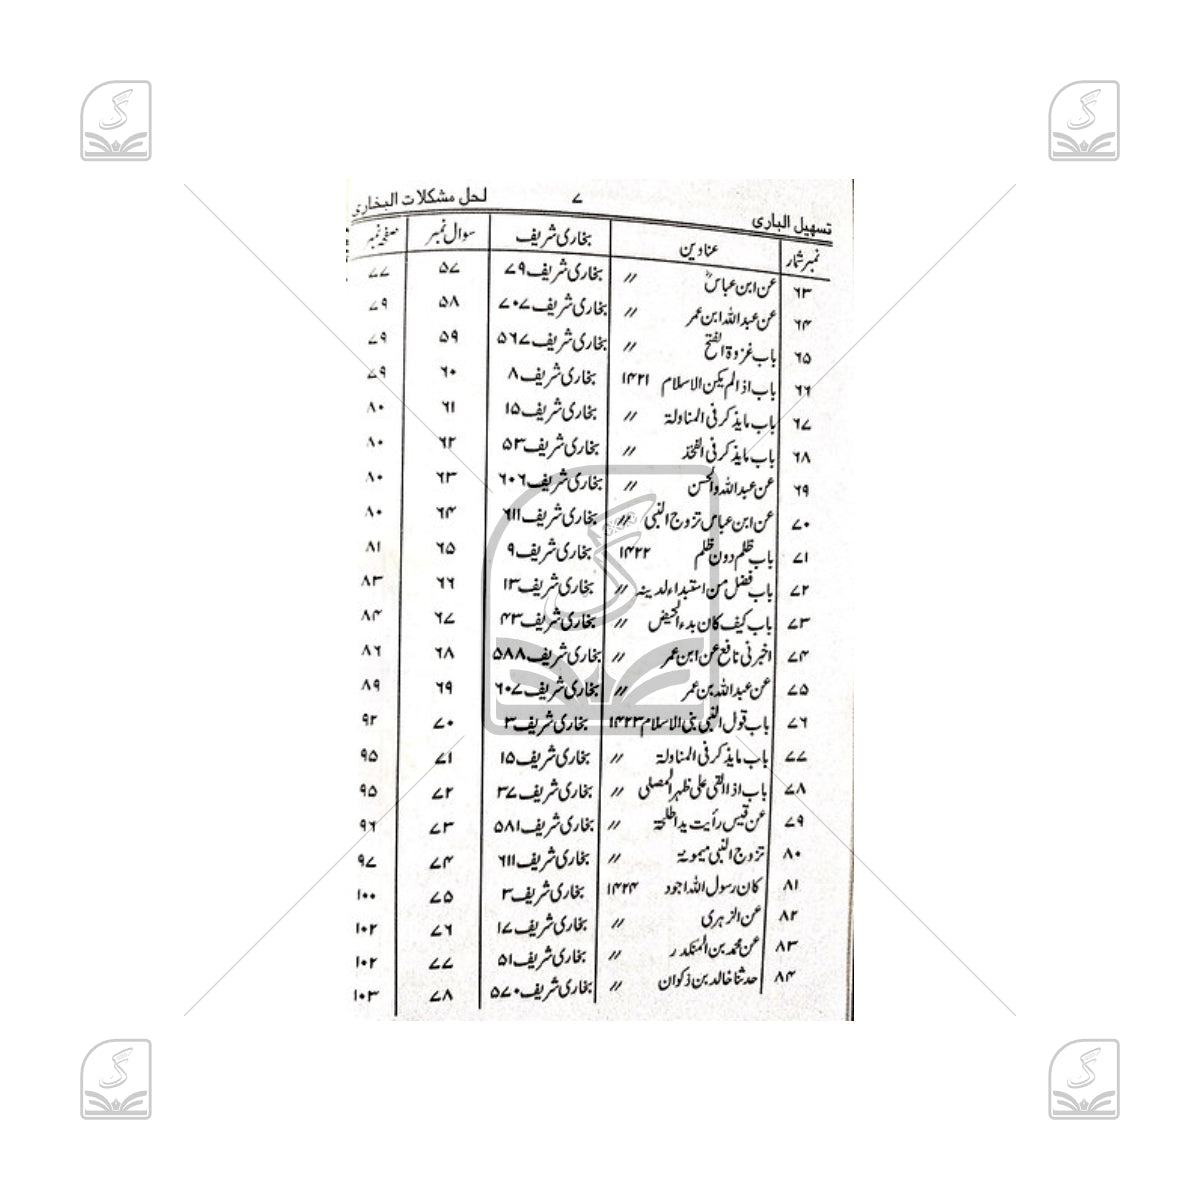 تسہیل الباری ۷ لحل مشکلات البخاری
نمبر شمار عناوین بخاری شریف سوال نمبر صفحہ نمبر
۶۳ عن ابن عباسؓ // بخاری شریف ۷۹ ۵۷ ۷۷
۶۴ عن عبداللہ ابن عمر // بخاری شریف ۷۰۷ ۵۸ ۷۹
۶۵ باب غزوۃ الفتح // بخاری شریف ۵۶۷ ۵۹ ۷۹
۶۶ باب اذالم یکن الاسلام ۱۴۲۱ بخاری شریف ۸ ۶۰ ۷۹
۶۷ باب مایذکر فی المناولۃ // بخاری شریف ۱۵ ۶۱ ۸۰
۶۸ باب مایذکر فی الفخذ // بخاری شریف ۵۳ ۶۲ ۸۰
۶۹ عن عبداللہ والحسن // بخاری شریف ۶۰۶ ۶۳ ۸۰
۷۰ عن ابن عباس تزوج النبی // بخاری شریف ۶۱۱ ۶۴ ۸۰
۷۱ باب ظلم دون ظلم ۱۴۲۲ بخاری شریف ۹ ۶۵ ۸۱
۷۲ باب فضل من استبداء لدینہ // بخاری شریف ۱۳ ۶۶ ۸۳
۷۳ باب کیف کان بدء الحیض // بخاری شریف ۴۳ ۶۷ ۸۴
۷۴ اخبرنی نافع عن ابن عمر // بخاری شریف ۵۸۸ ۶۸ ۸۶
۷۵ عن عبداللہ بن عمر // بخاری شریف ۶۰۷ ۶۹ ۸۹
۷۶ باب قول النبی بنی الاسلام ۱۴۲۳ بخاری شریف ۳ ۷۰ ۹۲
۷۷ باب مایذکر فی المناولۃ // بخاری شریف ۱۵ ۷۱ ۹۵
۷۸ باب اذاالقی علی ظہر المصلی // بخاری شریف ۳۷ ۷۲ ۹۵
۷۹ عن قیس رأیت ید اطلحۃ // بخاری شریف ۵۸۱ ۷۳ ۹۶
۸۰ تزوج النبی میمونۃ // بخاری شریف ۶۱۱ ۷۴ ۹۷
۸۱ کان رسول اللہ اجود ۱۴۲۴ بخاری شریف ۳ ۷۵ ۱۰۰
۸۲ عن الزہری // بخاری شریف ۱۷ ۷۶ ۱۰۲
۸۳ عن محمد بن المنکدر // بخاری شریف ۵۱ ۷۷ ۱۰۲
۸۴ حدثنا خالد بن ذکوان // بخاری شریف ۵۷۰ ۷۸ ۱۰۳